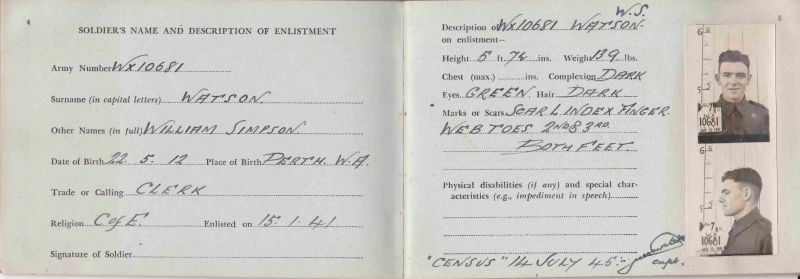 4
SOLDIER'S NAME AND DESCRIPTION OF ENLISTMENT
Army Number WX10681
Surname (in capital letters) WATSON.
Other Names (in full) WILLIAM SIMPSON.
Date of Birth 22. 5. 12 Place of Birth PERTH. W.A.
Trade or Calling CLERK
Religion C of E. Enlisted on 15.1.41
Signature of Soldier
5
W.S.
Description of WX10681 WATSON.
on enlistment—
Height 5 ft. 7¼ ins. Weight 139 lbs.
Chest (max.) ins. Complexion DARK
Eyes GREEN. Hair DARK
Marks or Scars SCAR L INDEX FINGER.
WEB TOES 2ND & 3RD.
BOTH FEET
Physical disabilities (if any) and special char-
acteristics (e.g., impediment in speech)
"CENSUS" 14 JULY 45:-
capt.
6 6
10681
6 6
10681